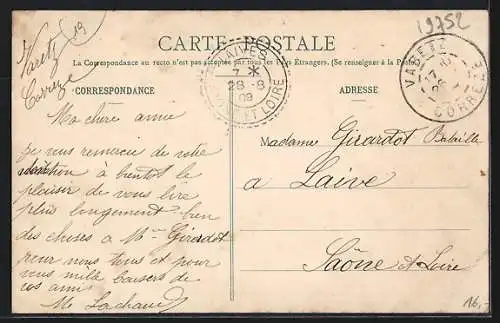 Varetz
Corrèze
19
19752
CARTE POSTALE
La Correspondance au recto n'est pas acceptée par tous les Pays Étrangers. (Se renseigner à la Poste)
CORRESPONDANCE
ADRESSE
LAIVES
7 *
28 - 8
09
ET LOIRE
VARETZ
17
26
CORRÈZE
Ma chère amie
je vous remercie de votre
à bientôt le
plaisir de vous lire
plus longuement bien
des choses à Mme Girardot
pour vous tous et pour
vous mille baisers de
vos amis
M. Lachaud
Madame Girardot Bataille
a Laive
Saône et Loire
16,-